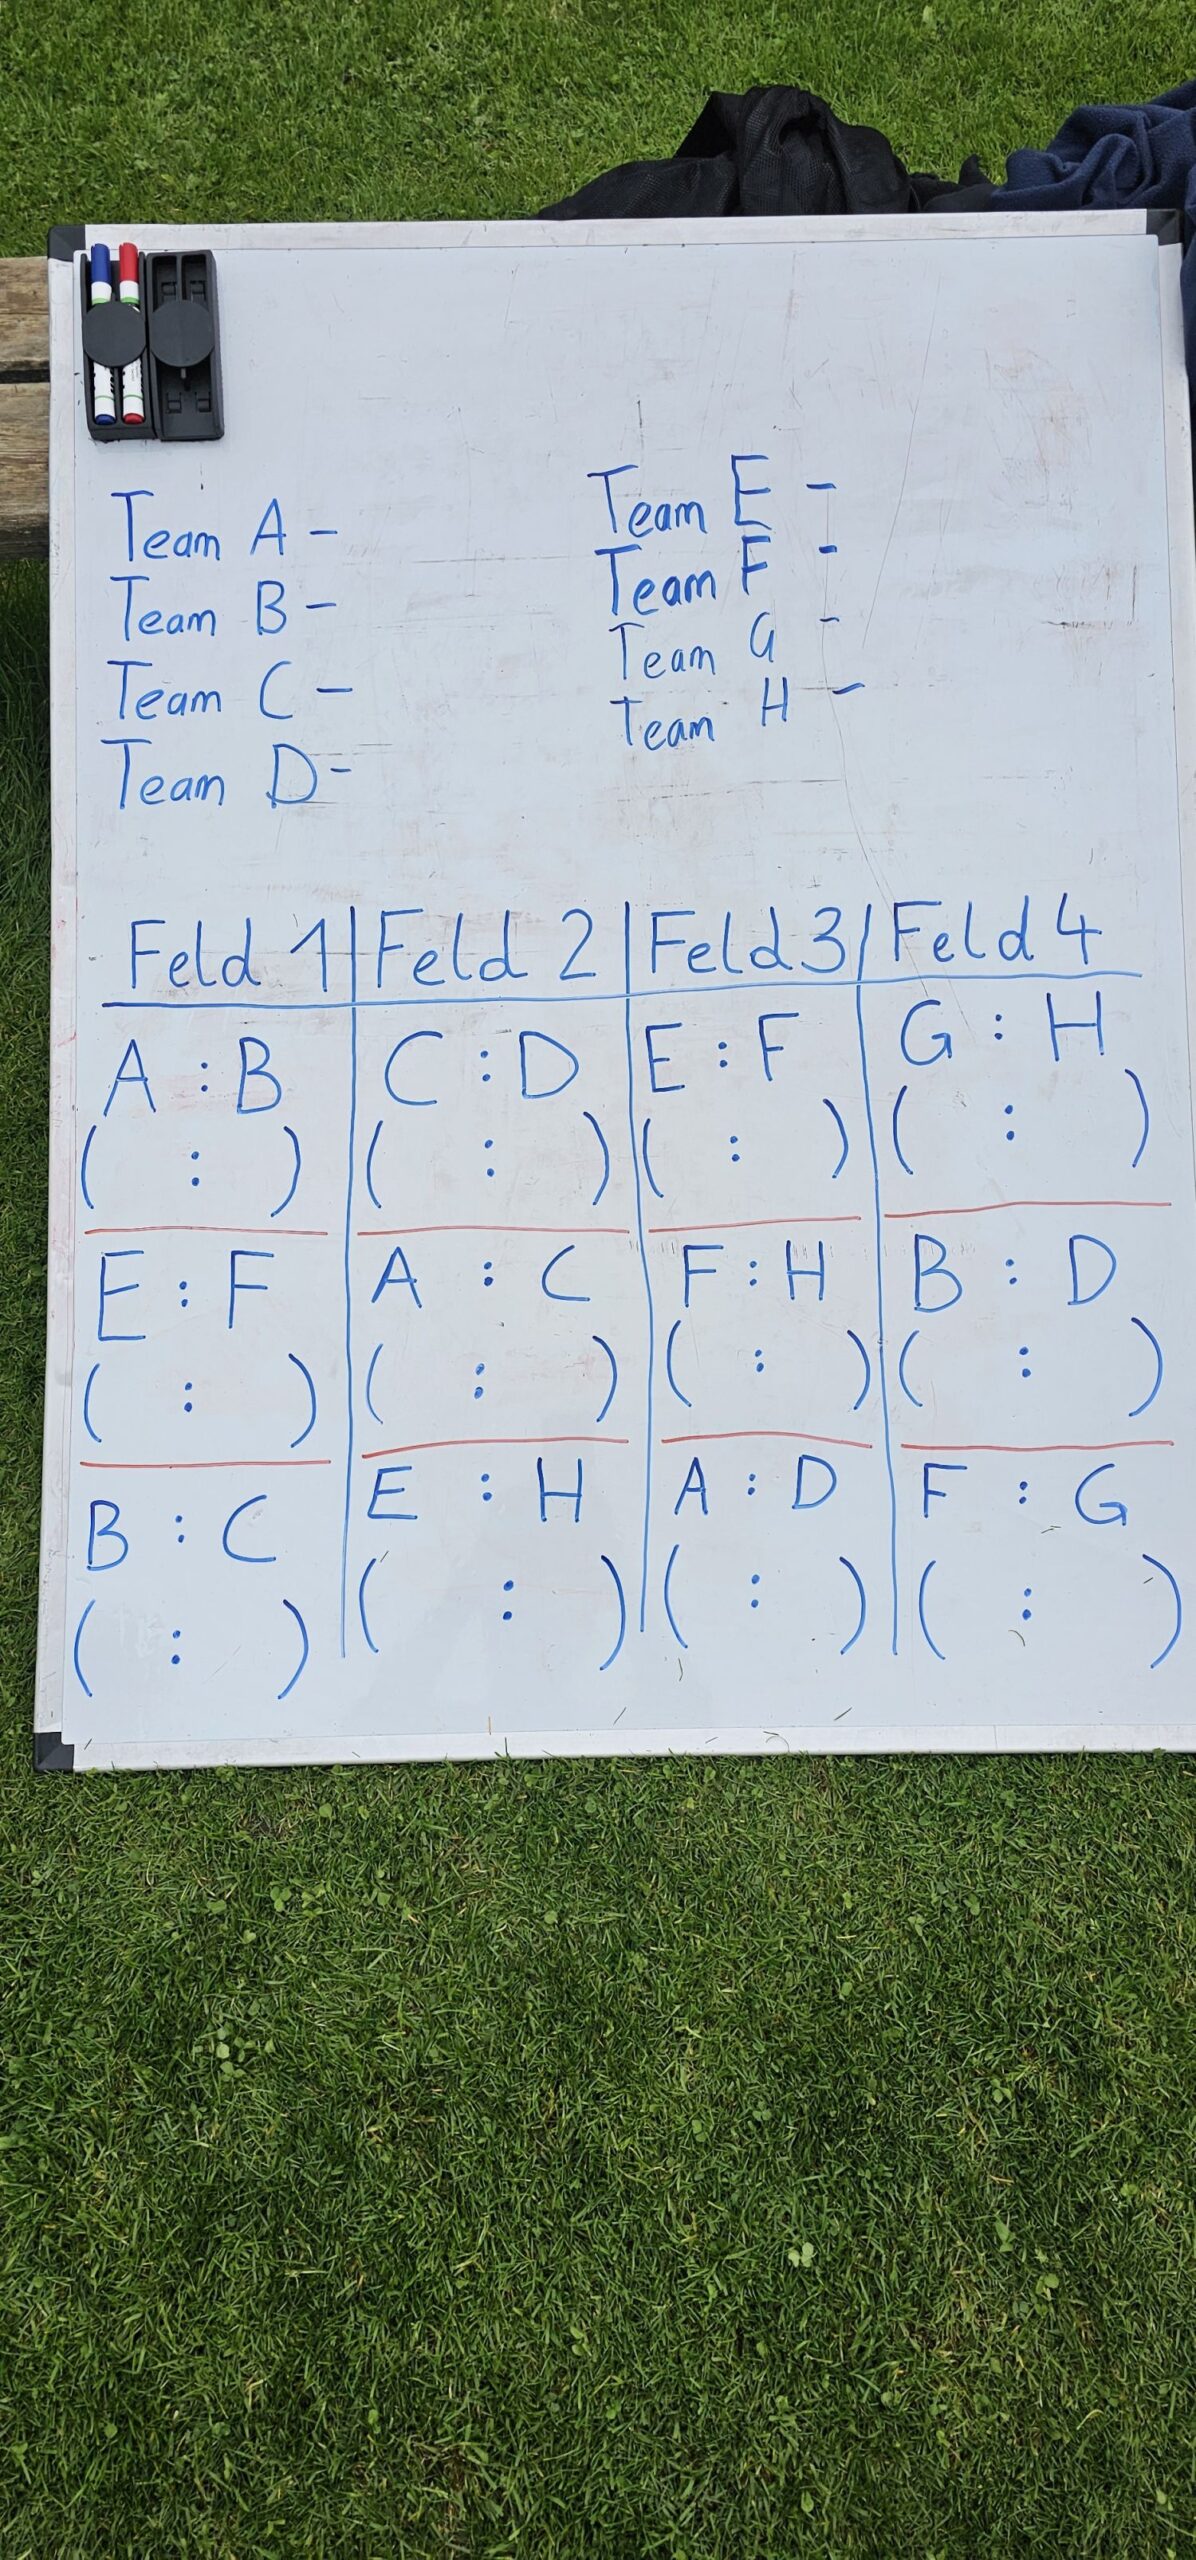 Team A -
Team B -
Team C -
Team D -
Team E -
Team F -
Team G -
Team H -
Feld 1 Feld 2 Feld 3 Feld 4
A : B C : D E : F G : H
( : ) ( : ) ( : ) ( : )
E : F A : C F : H B : D
( : ) ( : ) ( : ) ( : )
B : C E : H A : D F : G
( : ) ( : ) ( : ) ( : )